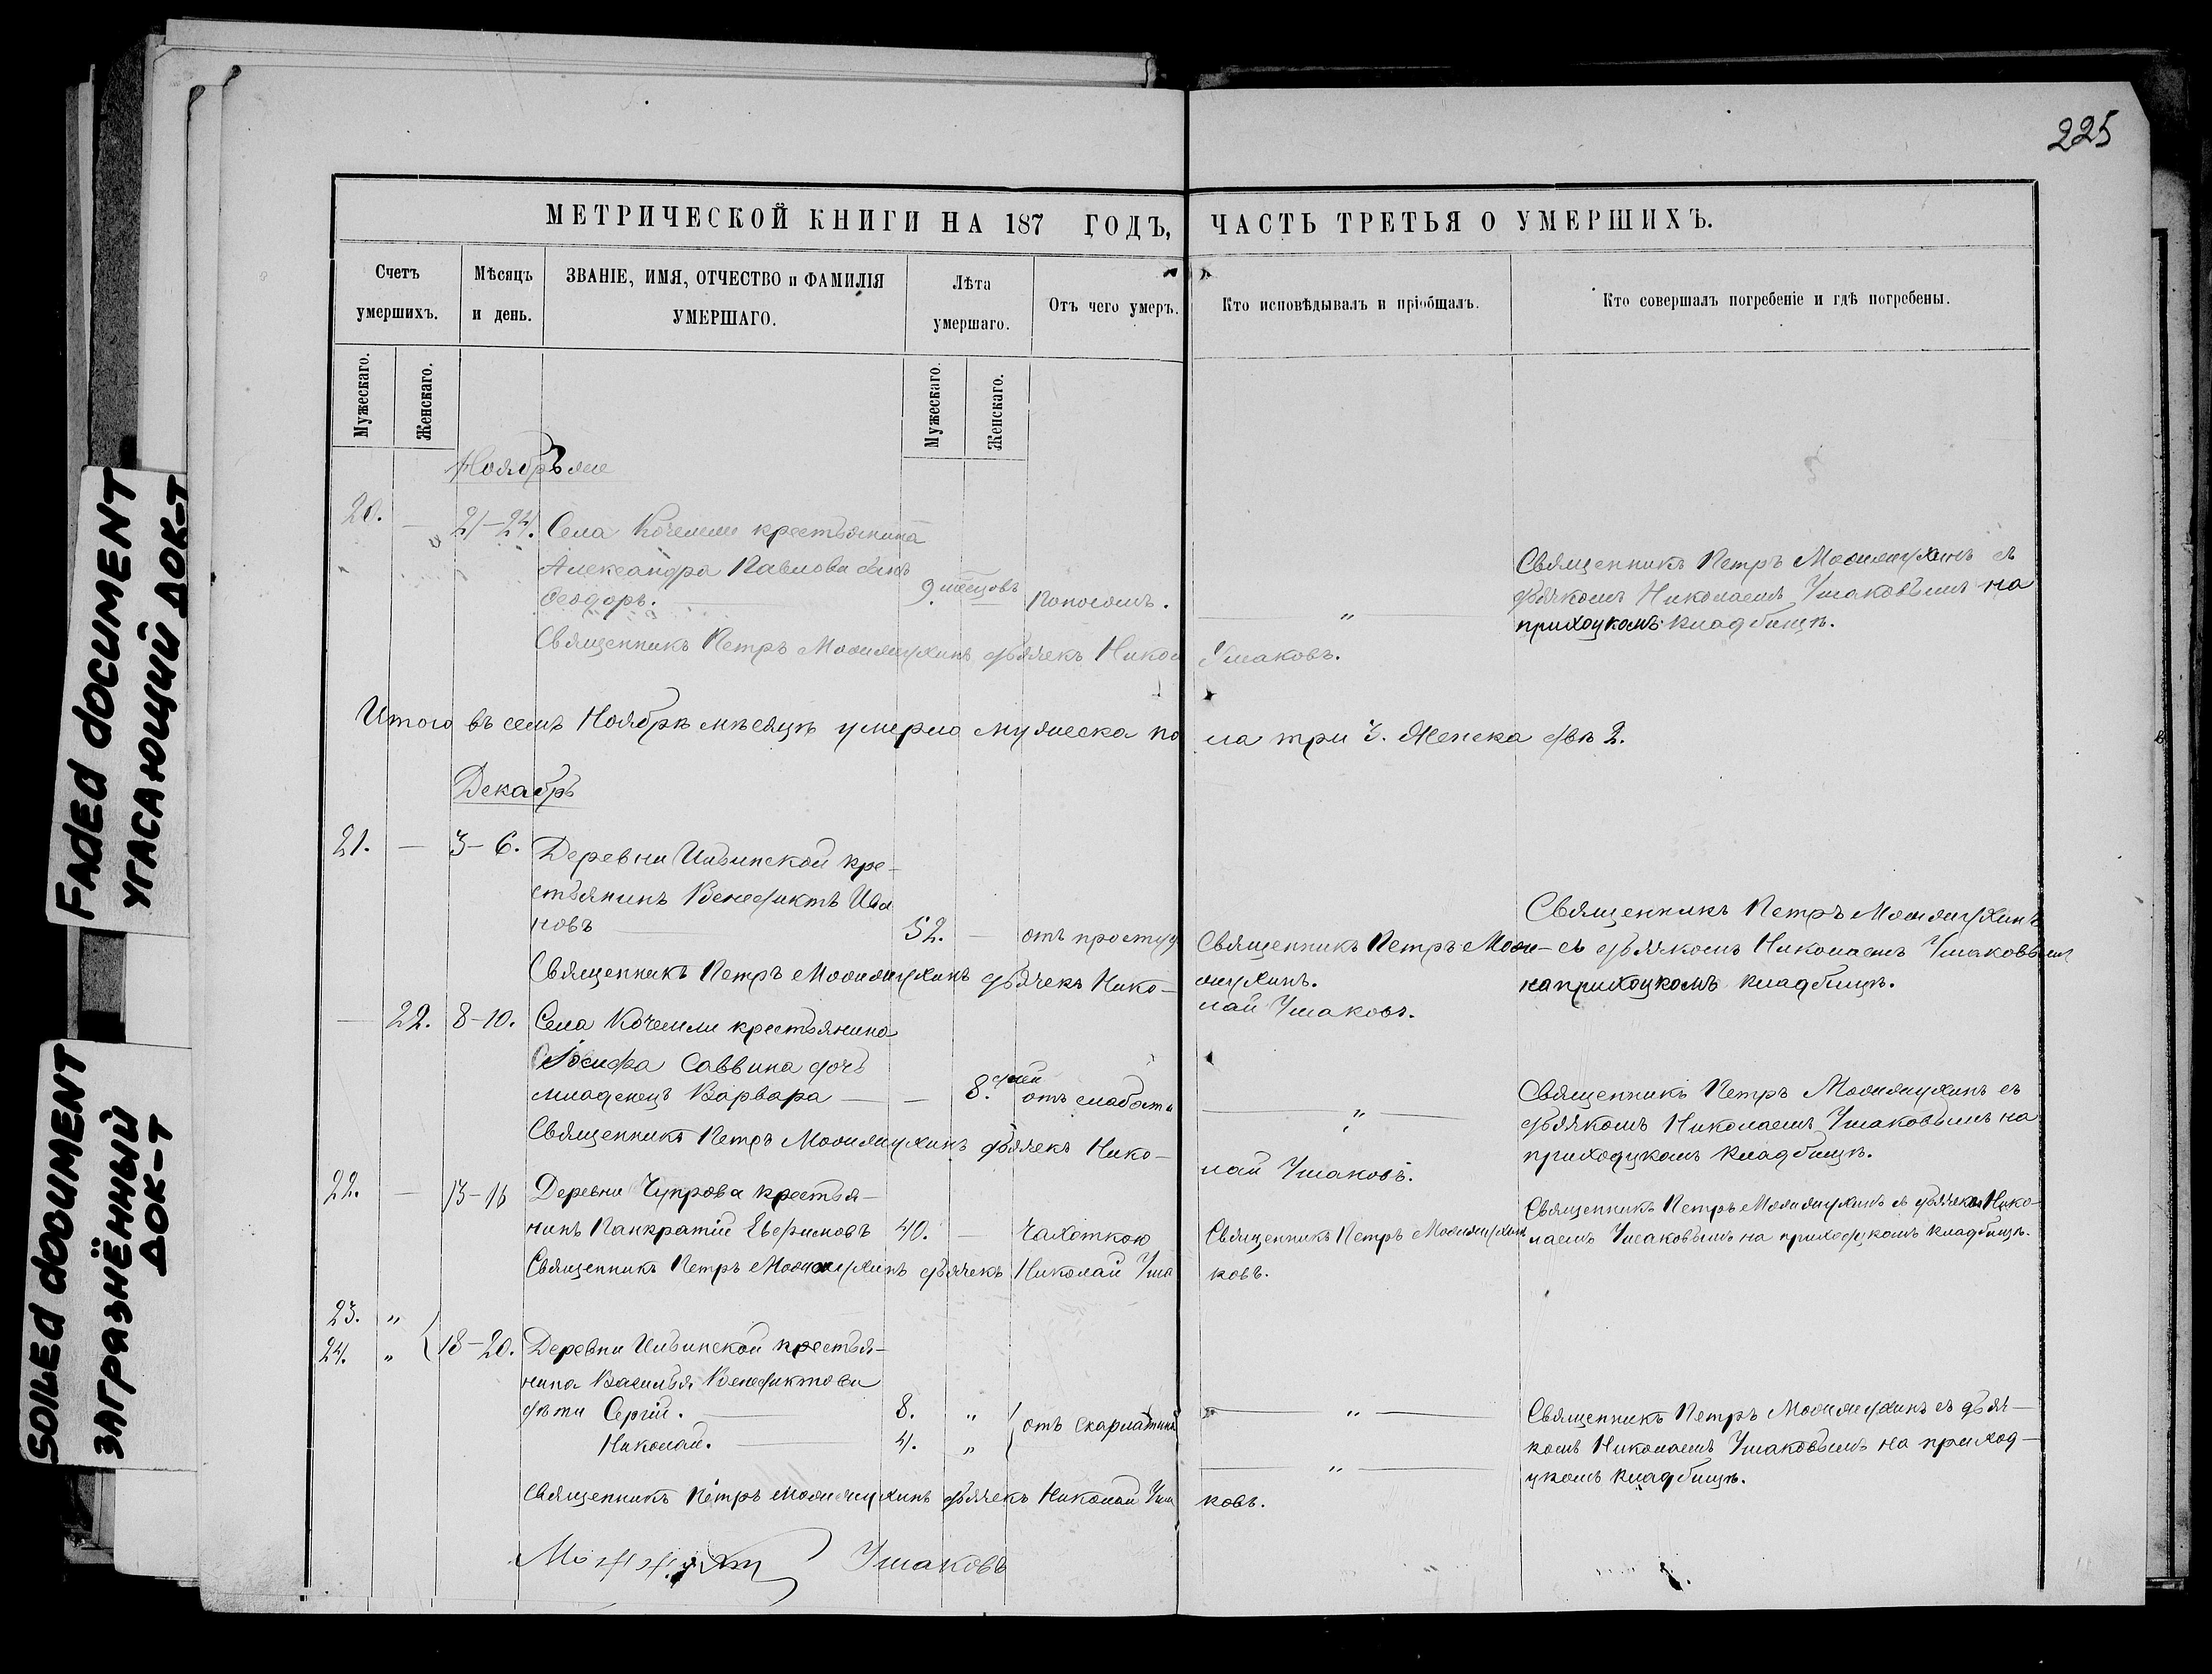 225
FADED DOCUMENT
УГАСАЮЩИЙ ДОК-Т
SOILED DOCUMENT
ЗАГРЯЗНЁННЫЙ ДОК-Т
МЕТРИЧЕСКОЙ КНИГИ НА 187 ГОДЪ, ЧАСТЬ ТРЕТЬЯ О УМЕРШИХЪ.
Счетъ умершихъ.
Мужескаго.
Женскаго.
Мѣсяцъ и день.
ЗВАНІЕ, ИМЯ, ОТЧЕСТВО и ФАМИЛІЯ УМЕРШАГО.
Лѣта умершаго.
Мужескаго.
Женскаго.
Отъ чего умеръ.
Кто исповѣдывалъ и пріобщалъ.
Кто совершалъ погребеніе и гдѣ погребены.
Ноябрь
20. — 21-24. Села Кочемли крестьянина
Александра Павлова сынъ
Ѳеодоръ. 9 поносомъ. "
Священникъ Петръ съ
дьячкомъ Николаемъ Ушаковымъ на
приходскомъ кладбищѣ.
Священникъ Петръ дьячекъ Никол Ушаковъ.
Итого въ семъ Ноябрѣ мѣсяцѣ умерло мужеска пола три 3. Женска двѣ 2.
Декабрь
21. — 3-6. Деревни Ильинской кре-
стьянинъ Венедиктъ Ива
новъ 52. — отъ простуд
Священникъ Петръ
Священникъ Петръ
съ дьячкомъ Николаемъ Ушаковым
на приходскомъ кладбищѣ.
Священникъ Петръ дьячекъ Нико-
лай Ушаковъ.
— 22. 8-10. Села Кочемли крестьянина
Іосифа Саввина дочь
младенецъ Варвара — — 8. дней отъ слабости "
Священникъ Петръ съ
дьячкомъ Николаемъ Ушаковымъ на
приходскомъ кладбищѣ.
Священникъ Петръ дьячекъ Нико-
лай Ушаковъ.
22. — 13-16 Деревни Чупрова крестья-
нинъ Панкратій 40. — Чахоткою
Священникъ Петръ
Священникъ Петръ Нико-
лаемъ Ушаковымъ на приходскомъ кладбищѣ.
Священникъ Петръ дьячекъ Николай Уша
ковъ.
23. "
24. " 18-20. Деревни Ильинской крестья-
нина Василья Венедиктова
дѣти Сергій. 8. " отъ скарлатины "
Николай. 4. " "
Священникъ Петръ съ дьяч-
комъ Николаемъ Ушаковымъ на приход-
скомъ кладбищѣ.
Священникъ Петръ дьячекъ Николай Уша
ковъ.
Ушаковъ